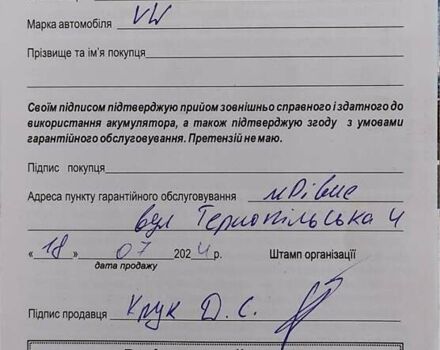 Марка автомобіля VW
Прізвище та ім'я покупця
Своїм підписом підтверджую прийом зовнішньо справного і здатного до
використання акумулятора, а також підтверджую згоду з умовами
гарантійного обслуговування. Претензій не маю.
Підпис покупця
Адреса пункту гарантійного обслуговування м Рівне
вул Тернопільська 4
«18» 07 2024 р. Штамп організації
дата продажу
Підпис продавця Крук Д. С.